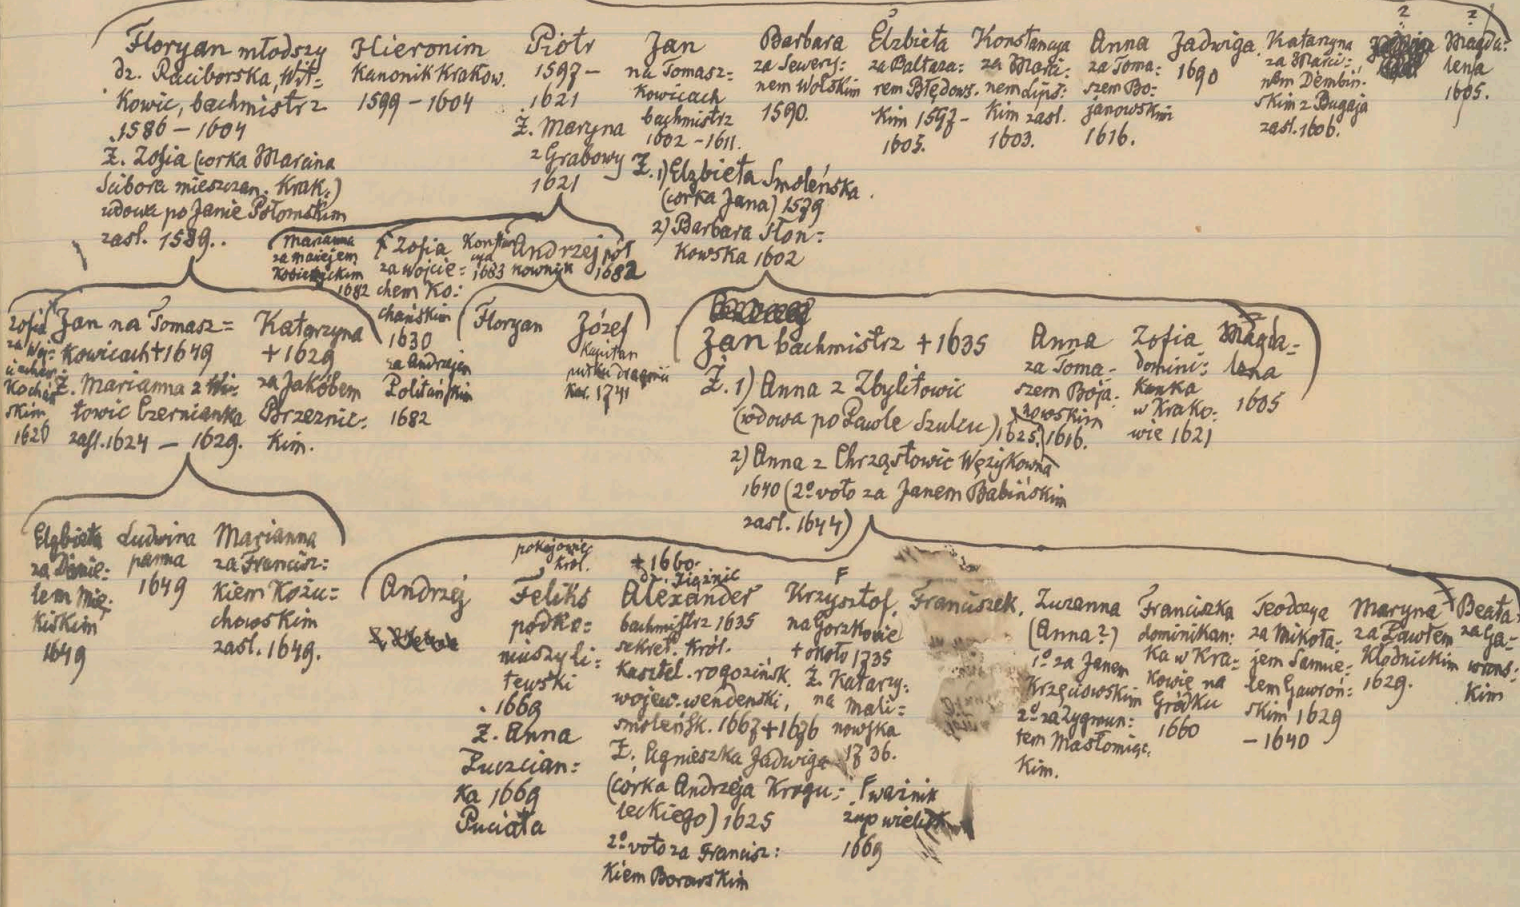 Floryan młodszy
dz. Raciborska, Wit=
kowic, bachmistrz
1586 – 1604
Ż. Zofia (corka Marcina
Scibora mieszczan. Krak.)
wdowa po Janie Połomskim
zaśl. 1589..
Hieronim
Kanonik Krakow.
1599 – 1604
Piotr
1597 –
1621
Ż. Maryna
z Grabowy
1621
Jan
na Tomasz=
kowicach
bachmistrz
1602 – 1611.
Ż. 1) Elzbieta Smoleńska
(corka Jana) 1579
2) Barbara Słon=
kowska 1602
Barbara
za Sewery=
nem Wolskim
1590.
Elzbieta
za Baltaza=
rem Błędows=
kim 1597 –
1605.
Konstancya
za Marci=
nem Lips=
kim zasl.
1603.
Anna
za Toma=
szem Bo=
janowskim
1616.
Jadwiga
1690
Katarzyna
za Marci=
nem Dembiń=
skim z Bugaja
zasl. 1606.
2
2
Magda=
lena
1605.
Marianna
za Maciejem
1682
Zofia
za Wojcie=
chem Ko=
chańskim
1630
za Andrzejem
Politańskim
1682
Konstan
cya
1683
Andrzej pół
kownik 1682
Floryan
Józef
Kapitan
pułku dragonii
kor. 1741
Zofia
za Woj=
ciechem
Kochań
skim
1626
Jan na Tomasz=
kowicach + 1649
Ż. Marianna z Wi=
towic Czernianka
zasl. 1624 – 1629.
Katarzyna
+ 1629
za Jakóbem
Brzeznic=
kim.
Jan bachmistrz + 1635
Ż. 1) Anna z Zbylitowic
(wdowa po Pawle Szulcu) 1625.
2) Anna z Chrząstowic Wężykowna
1640 (2º voto za Janem Babińskim
zasl. 1644)
Anna
za Toma=
szem Boja=
nowskim
1616.
Zofia
domini=
kanka
w Krako=
wie 1621
Magda=
lena
1605
Elzbieta
za Danie=
lem Mię=
kiskim
1649
Ludwina
panna
1649
Marianna
za Francisz=
kiem Kożu=
chowskim
zasl. 1649.
Andrzej
pokojowiec
król.
Feliks
podko=
niuszy li=
tewski
1669
Ż. Anna
Puzcian=
ka 1669
Puciata
+ 1660.
dz. Xiąznic
Alexander
bachmistrz 1635
sekret. Król.
kasztel. rogozińsk.
wojew. wendenski,
smoleńsk. 1667 + 1676
Ż. Agnieszka Jadwiga
(córka Andrzeja Krogu=
leckiego) 1625
2º voto za Francisz=
kiem Borowskim
F
Krzysztof,
na Gorzkowie
+ około 1735
Ż. Katarzy=
na Mali=
nowska
1736.
F waznik
żup wielick.
1669
Franciszek,
Zuzanna
(Anna?)
1º za Janem
Krzęcisowskim
2º za Zygmun=
tem Masłomięc=
kim.
Franciszka
dominikan=
ka w Kra=
kowie na
Gródku
1660
Teodozya
za Mikoła=
jem Samue=
lem Gawroń=
skim 1629
– 1640
Maryna
za Pawłem
Kłodnickim
1629.
Beata
za Ga=
wrons=
kim